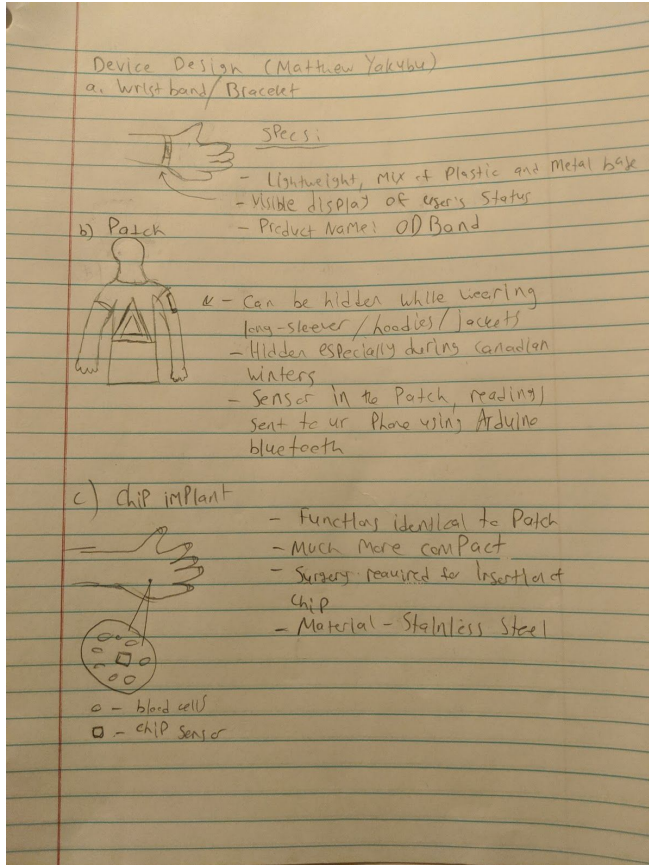 Device Design (Matthew Yakubu)
a. Wristband/Bracelet
Specs:
- Lightweight, Mix of Plastic and Metal base
- Visible display of user's status
- Product Name: OD Band
b) Patch
- Can be hidden while wearing
long-sleever/hoodies/jackets
- Hidden especially during Canadian
winters
- Sensor in the Patch, readings
sent to ur Phone using Arduino
bluetooth
c) Chip implant
- Functions identical to Patch
- Much more compact
- Surgery required for Insertion of
Chip
- Material - Stainless Steel
o - blood cells
□ - chip sensor